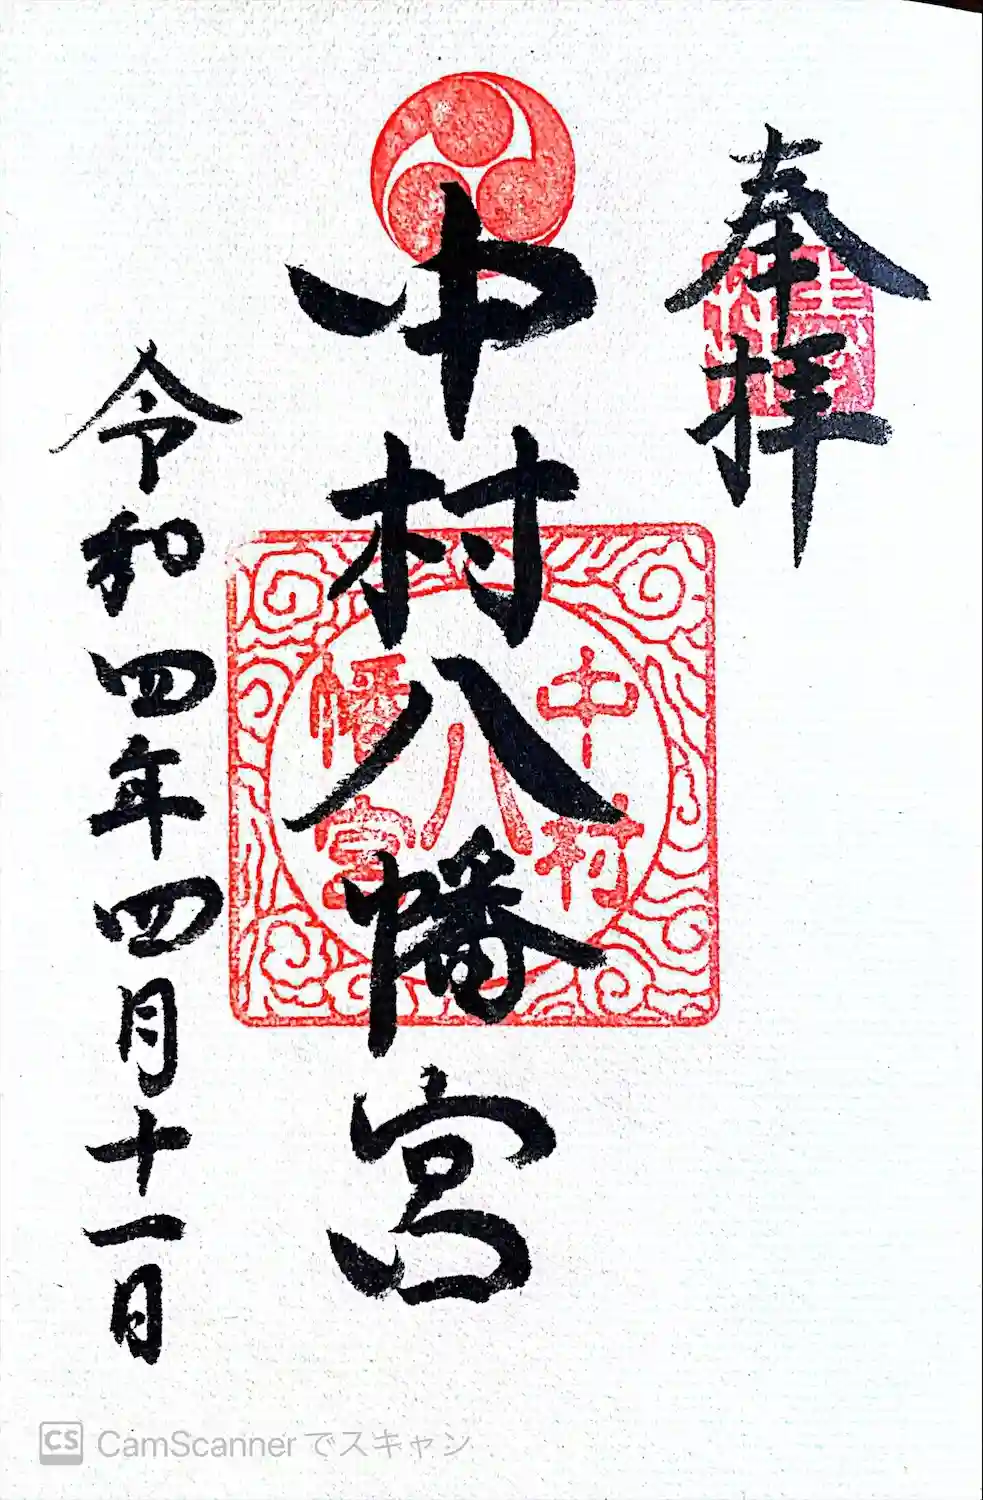 奉拝
中村八幡宮
中村八幡宮
令和四年四月十一日
CS CamScanner でスキャン